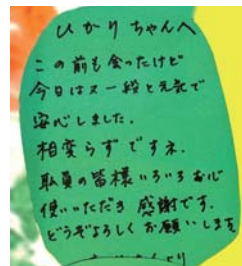 ひかりちゃんへ
この前も会ったけど
今日は又一段と元気で
安心しました。
相変らずですネ.
職員の皆様いろいろお心
使いいただき 感謝です.
どうぞよろしくお願いします